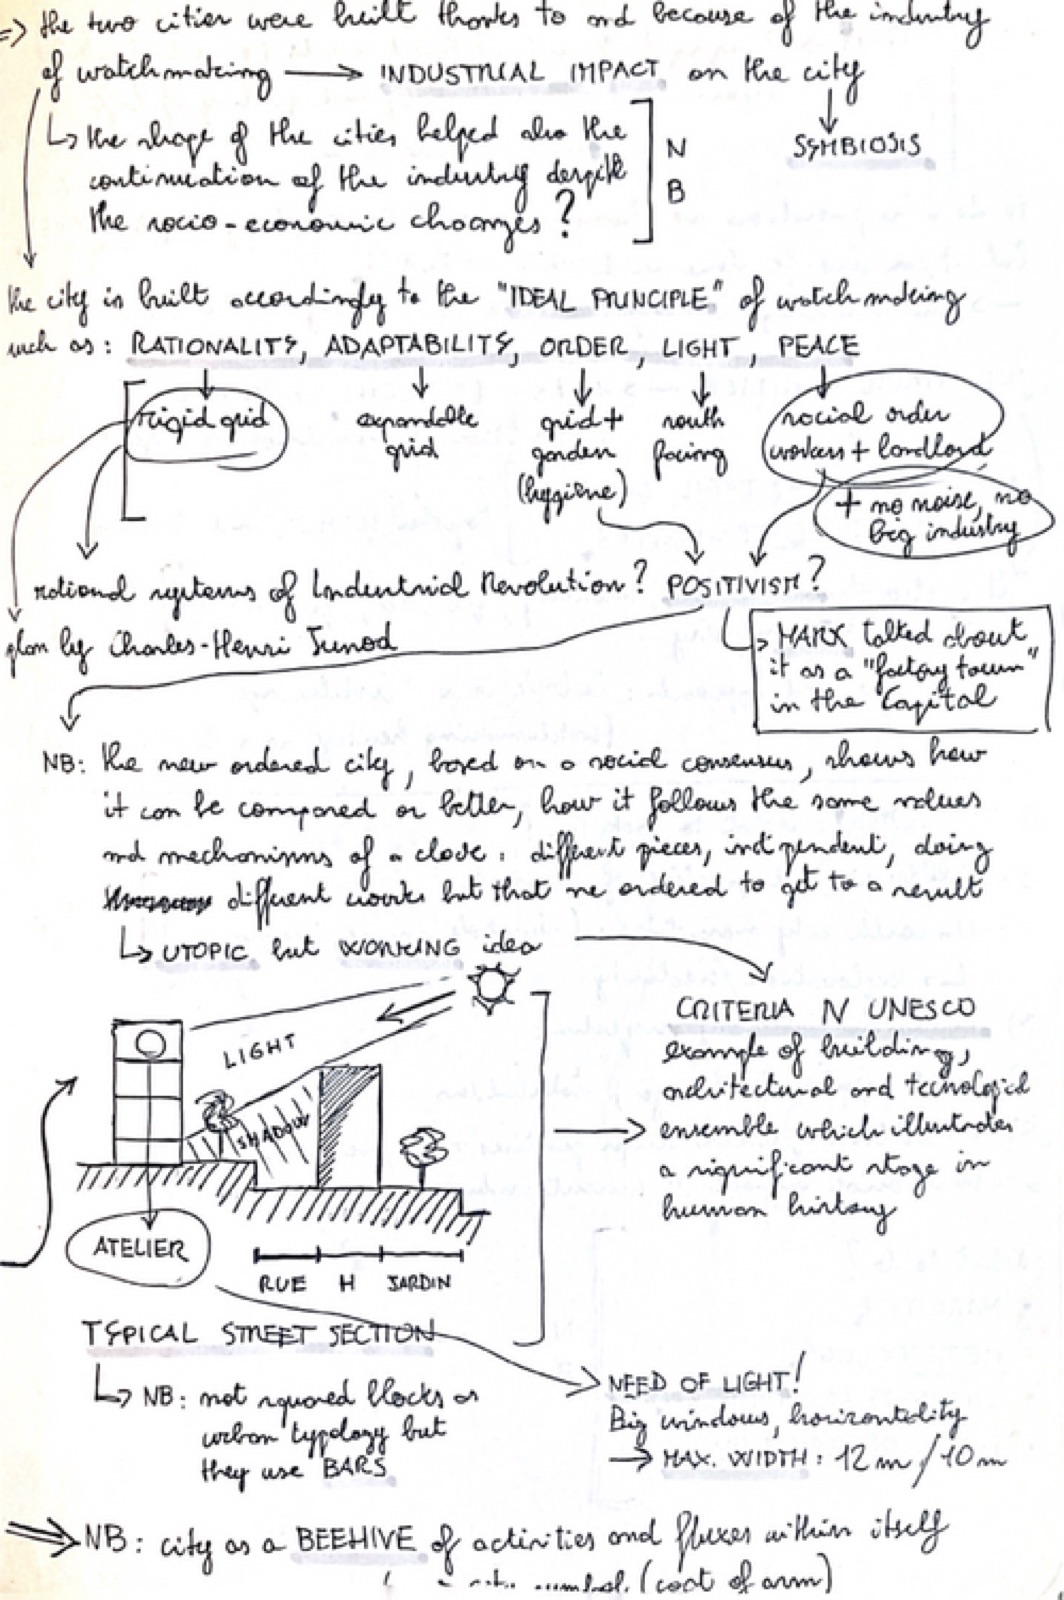 => the two cities were built thanks to and because of the industry
of watchmaking → INDUSTRIAL IMPACT on the city
↓
SYMBIOSIS
↳ the shape of the cities helped also the
continuation of the industry despite
the socio-economic changes?
N
B
the city is built accordingly to the "IDEAL PRINCIPLE" of watchmaking
such as: RATIONALITY, ADAPTABILITY, ORDER, LIGHT, PEACE
rigid grid
expandable
grid
grid +
garden
(hygiène)
south
facing
social order
workers + landlord
+ no noise, no
big industry
rational systems of Industrial Revolution? POSITIVISM?
plan by Charles-Henri Junod
MARX talked about
it as a "factory town"
in the Capital
NB: the new ordered city, based on a social consensus, shows how
it can be compared or better, how it follows the same values
and mechanisms of a clock: different pieces, indipendent, doing
different works but that are ordered to get to a result
↳ UTOPIC but WORKING idea
CRITERIA IV UNESCO
example of building,
architectural and tecnological
ensemble which illustrates
a significant stage in
human history
LIGHT
SHADOW
ATELIER
RUE H JARDIN
TYPICAL STREET SECTION
↳ NB: not squared blocks as
urban typology but
they use BARS
NEED OF LIGHT!
Big windows, horizontality
→ MAX. WIDTH: 12m/10m
⇒ NB: city as a BEEHIVE of activities and fluxes within itself
symbol (coat of arm)